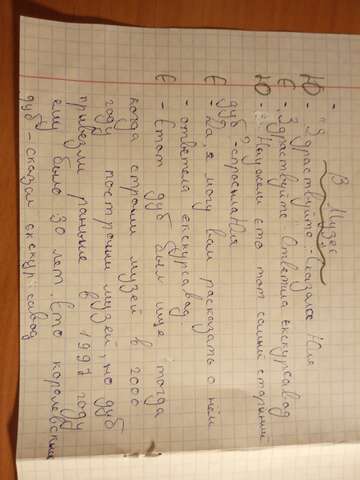 В Музее
Ю - "Здраствуйте - Сказала Юля
Е - "Здраствуйте - Ответила екскурсавод
Ю - "Неужели ето тот самый старинный
дуб"- спросила Юля
Е - Да, я могу вам расказать о нём
- ответела екскурсавод
Е - Етот дуб был ище тогда
когда строили музей в 2000
году построили музей, но дуб
привезли раньше в 1997 году
ему было 30 лет. Ето королевский
дуб - сказал екскурсавод